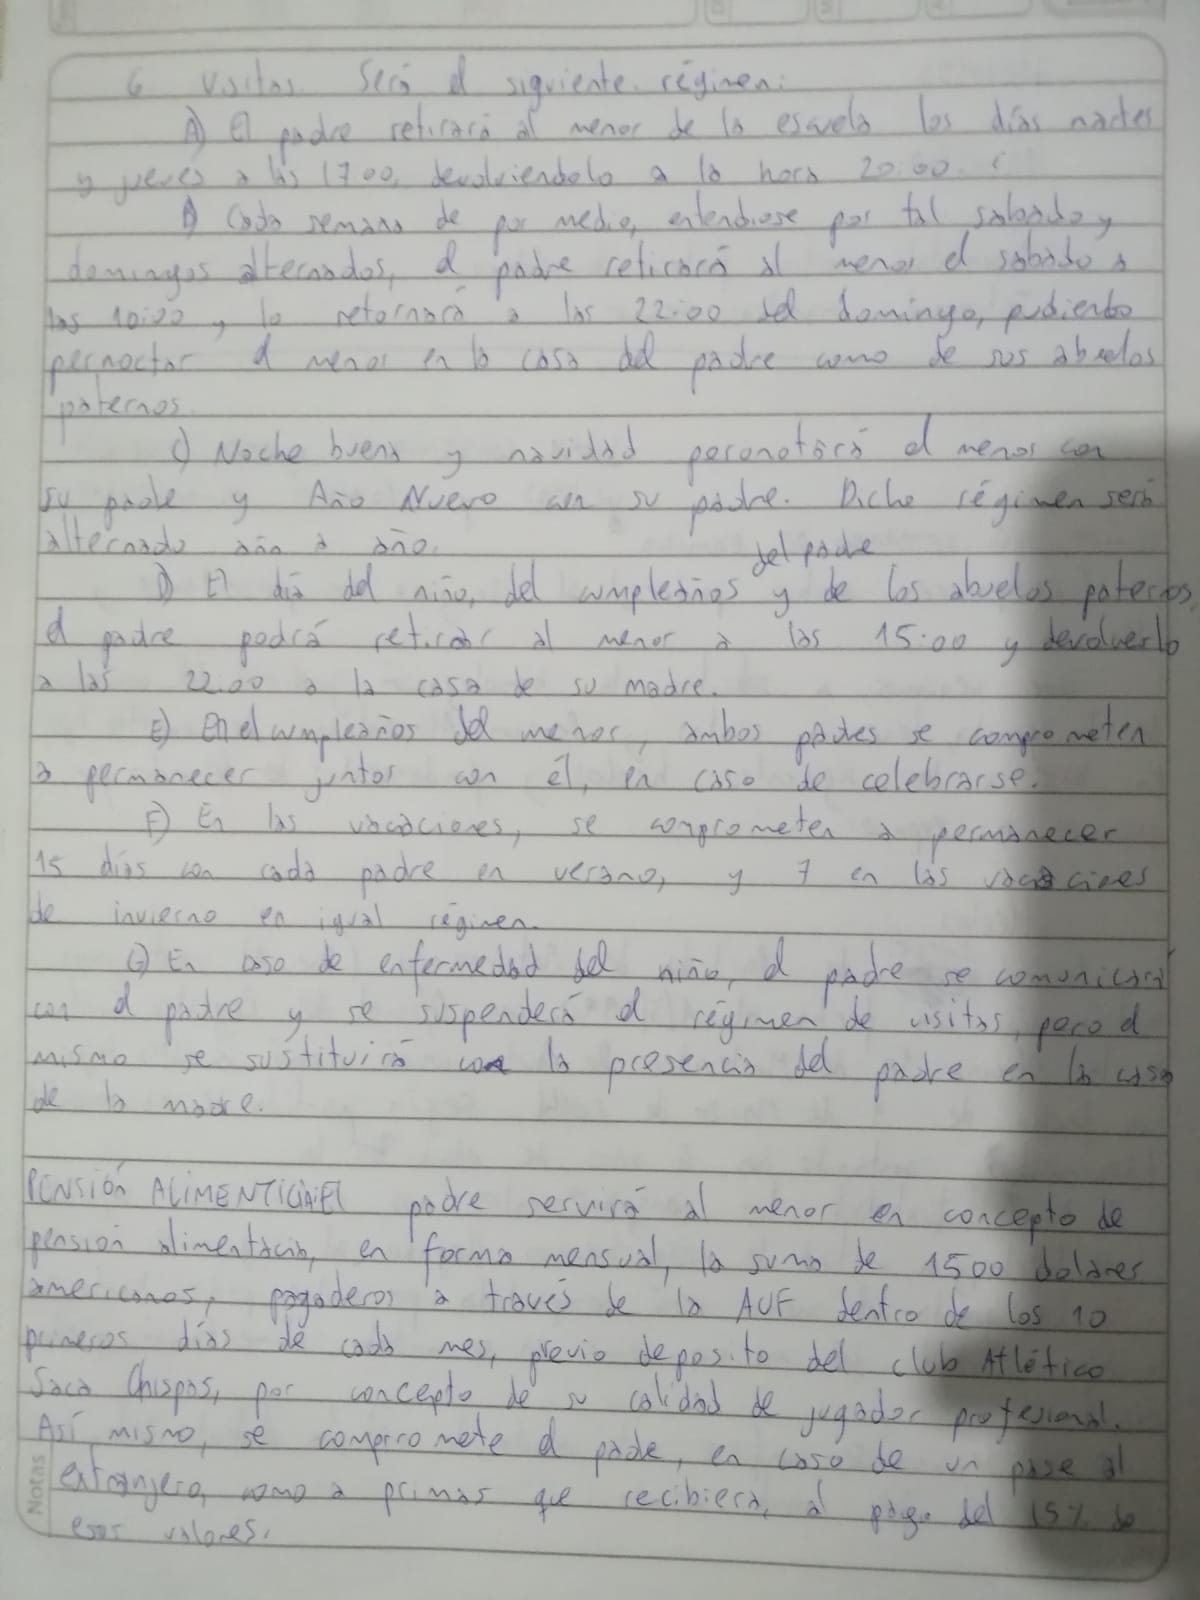 6 Visitas. Será el siguiente régimen:
A) El padre retirará al menor de la escuela los días martes
y jueves a las 17.00, devolviendolo a la hora 20:00.
B) Cada semana de por medio, entendiose por tal sabado y
domingos alternados, el padre retirará al menor el sabado a
las 10:00 y lo retornará a las 22:00 del domingo, pudiento
pernoctar el menor en la casa del padre como de sus abuelos
paternos.
C) Noche buena y navidad peronotará el menor con
su padle y Año Nuevo con su padre. Dicho régimen será
alternado año a año.
del padre
D) El día del niño, del cumpleaños y de los abuelos paternos,
el padre podrá retirar al menor a las 15:00 y devolverlo
a las 22.00 a la casa de su madre.
E) En el cumpleaños del menor, ambos padres se comprometen
a permanecer juntos con él, en caso de celebrarse.
F) En las vacaciones, se comprometen a permanecer
15 días con cada padre en verano, y 7 en las vacaciones
de invierno en igual régimen.
G) En caso de enfermedad del niño, el padre se comunicará
con el padre y se suspenderá el régimen de visitas, pero el
mismo se sustituirá con la presencia del padre en la casa
de la madre.
PENSIÓN ALIMENTICIA: El padre servirá al menor en concepto de
pensión alimentacia, en forma mensual, la suma de 1500 dolares
americanos, pagaderos a través de la AUF dentro de los 10
primeros días de cada mes, previo deposito del club Atlético
Saca Chispas, por concepto de su calidad de jugador profesional.
Así mismo, se compromete el padre, en caso de un pase al
extranjero, como a primas que recibiera, al pago del 15% de
esos valores.
Notas